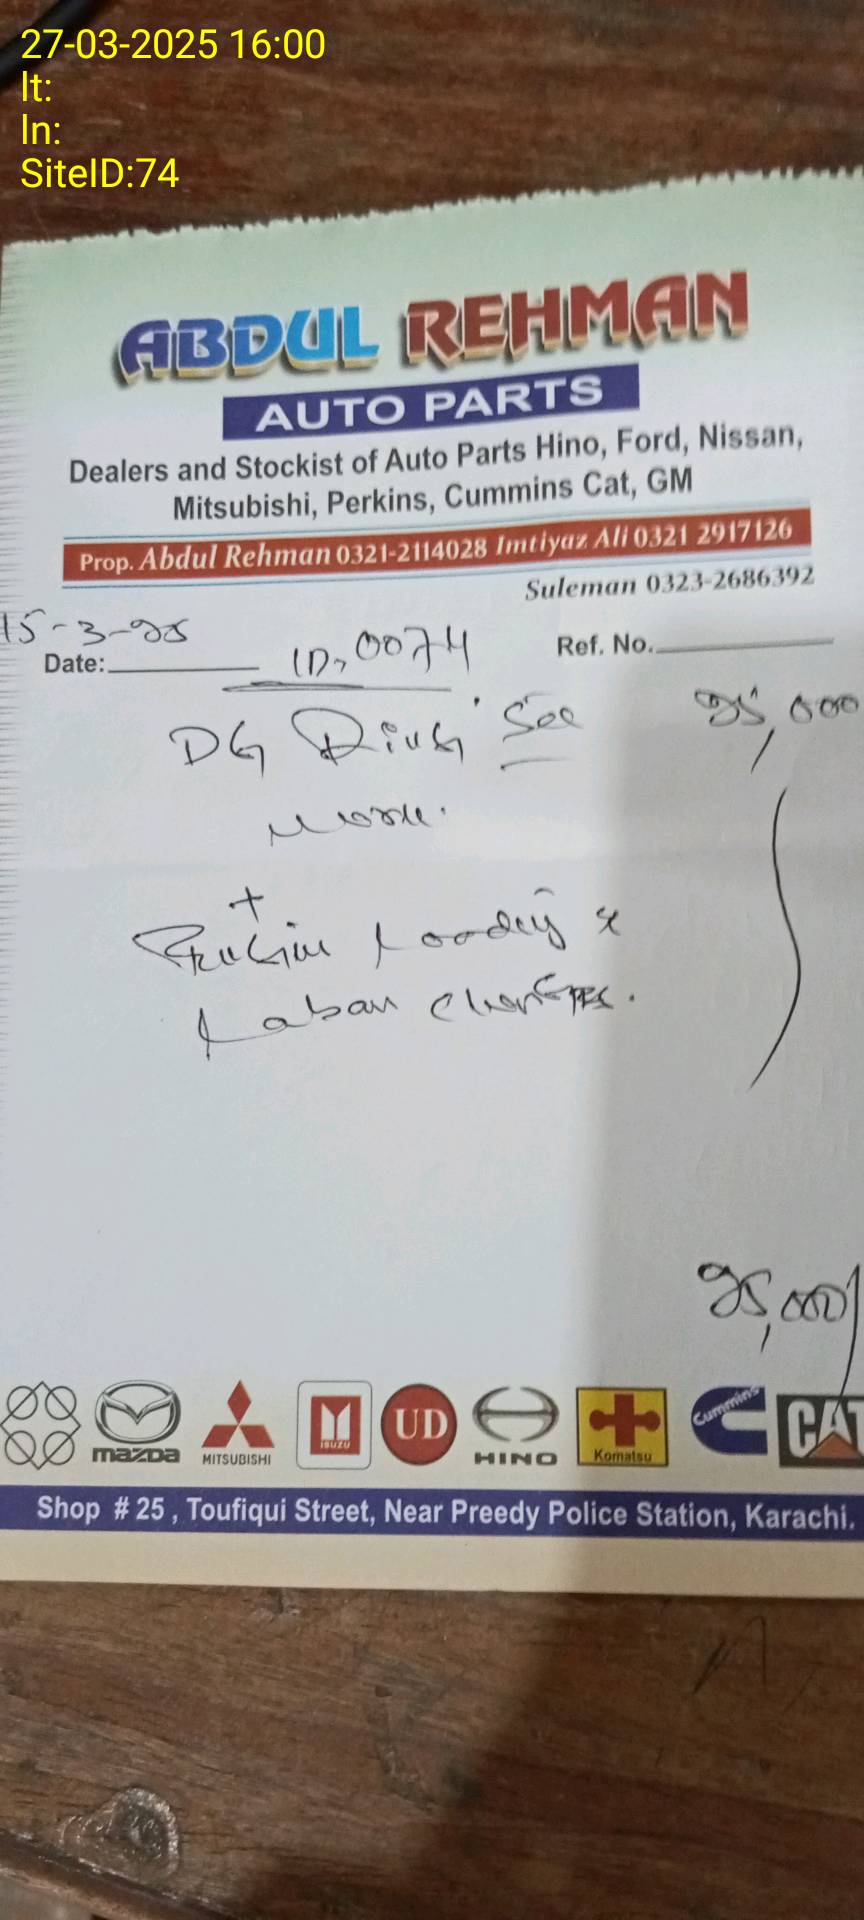 27-03-2025 16:00
lt:
ln:
SiteID:74
ABDUL REHMAN
AUTO PARTS
Dealers and Stockist of Auto Parts Hino, Ford, Nissan,
Mitsubishi, Perkins, Cummins Cat, GM
Prop. Abdul Rehman 0321-2114028 Imtiyaz Ali 0321 2917126
Suleman 0323-2686392
15-3-25
Date: ID, 0074 Ref. No.
DG 25,000
+
Loading &
Labour
25,000/
mazda MITSUBISHI ISUZU UD HINO Komatsu Cummins CAT
Shop # 25 , Toufiqui Street, Near Preedy Police Station, Karachi.